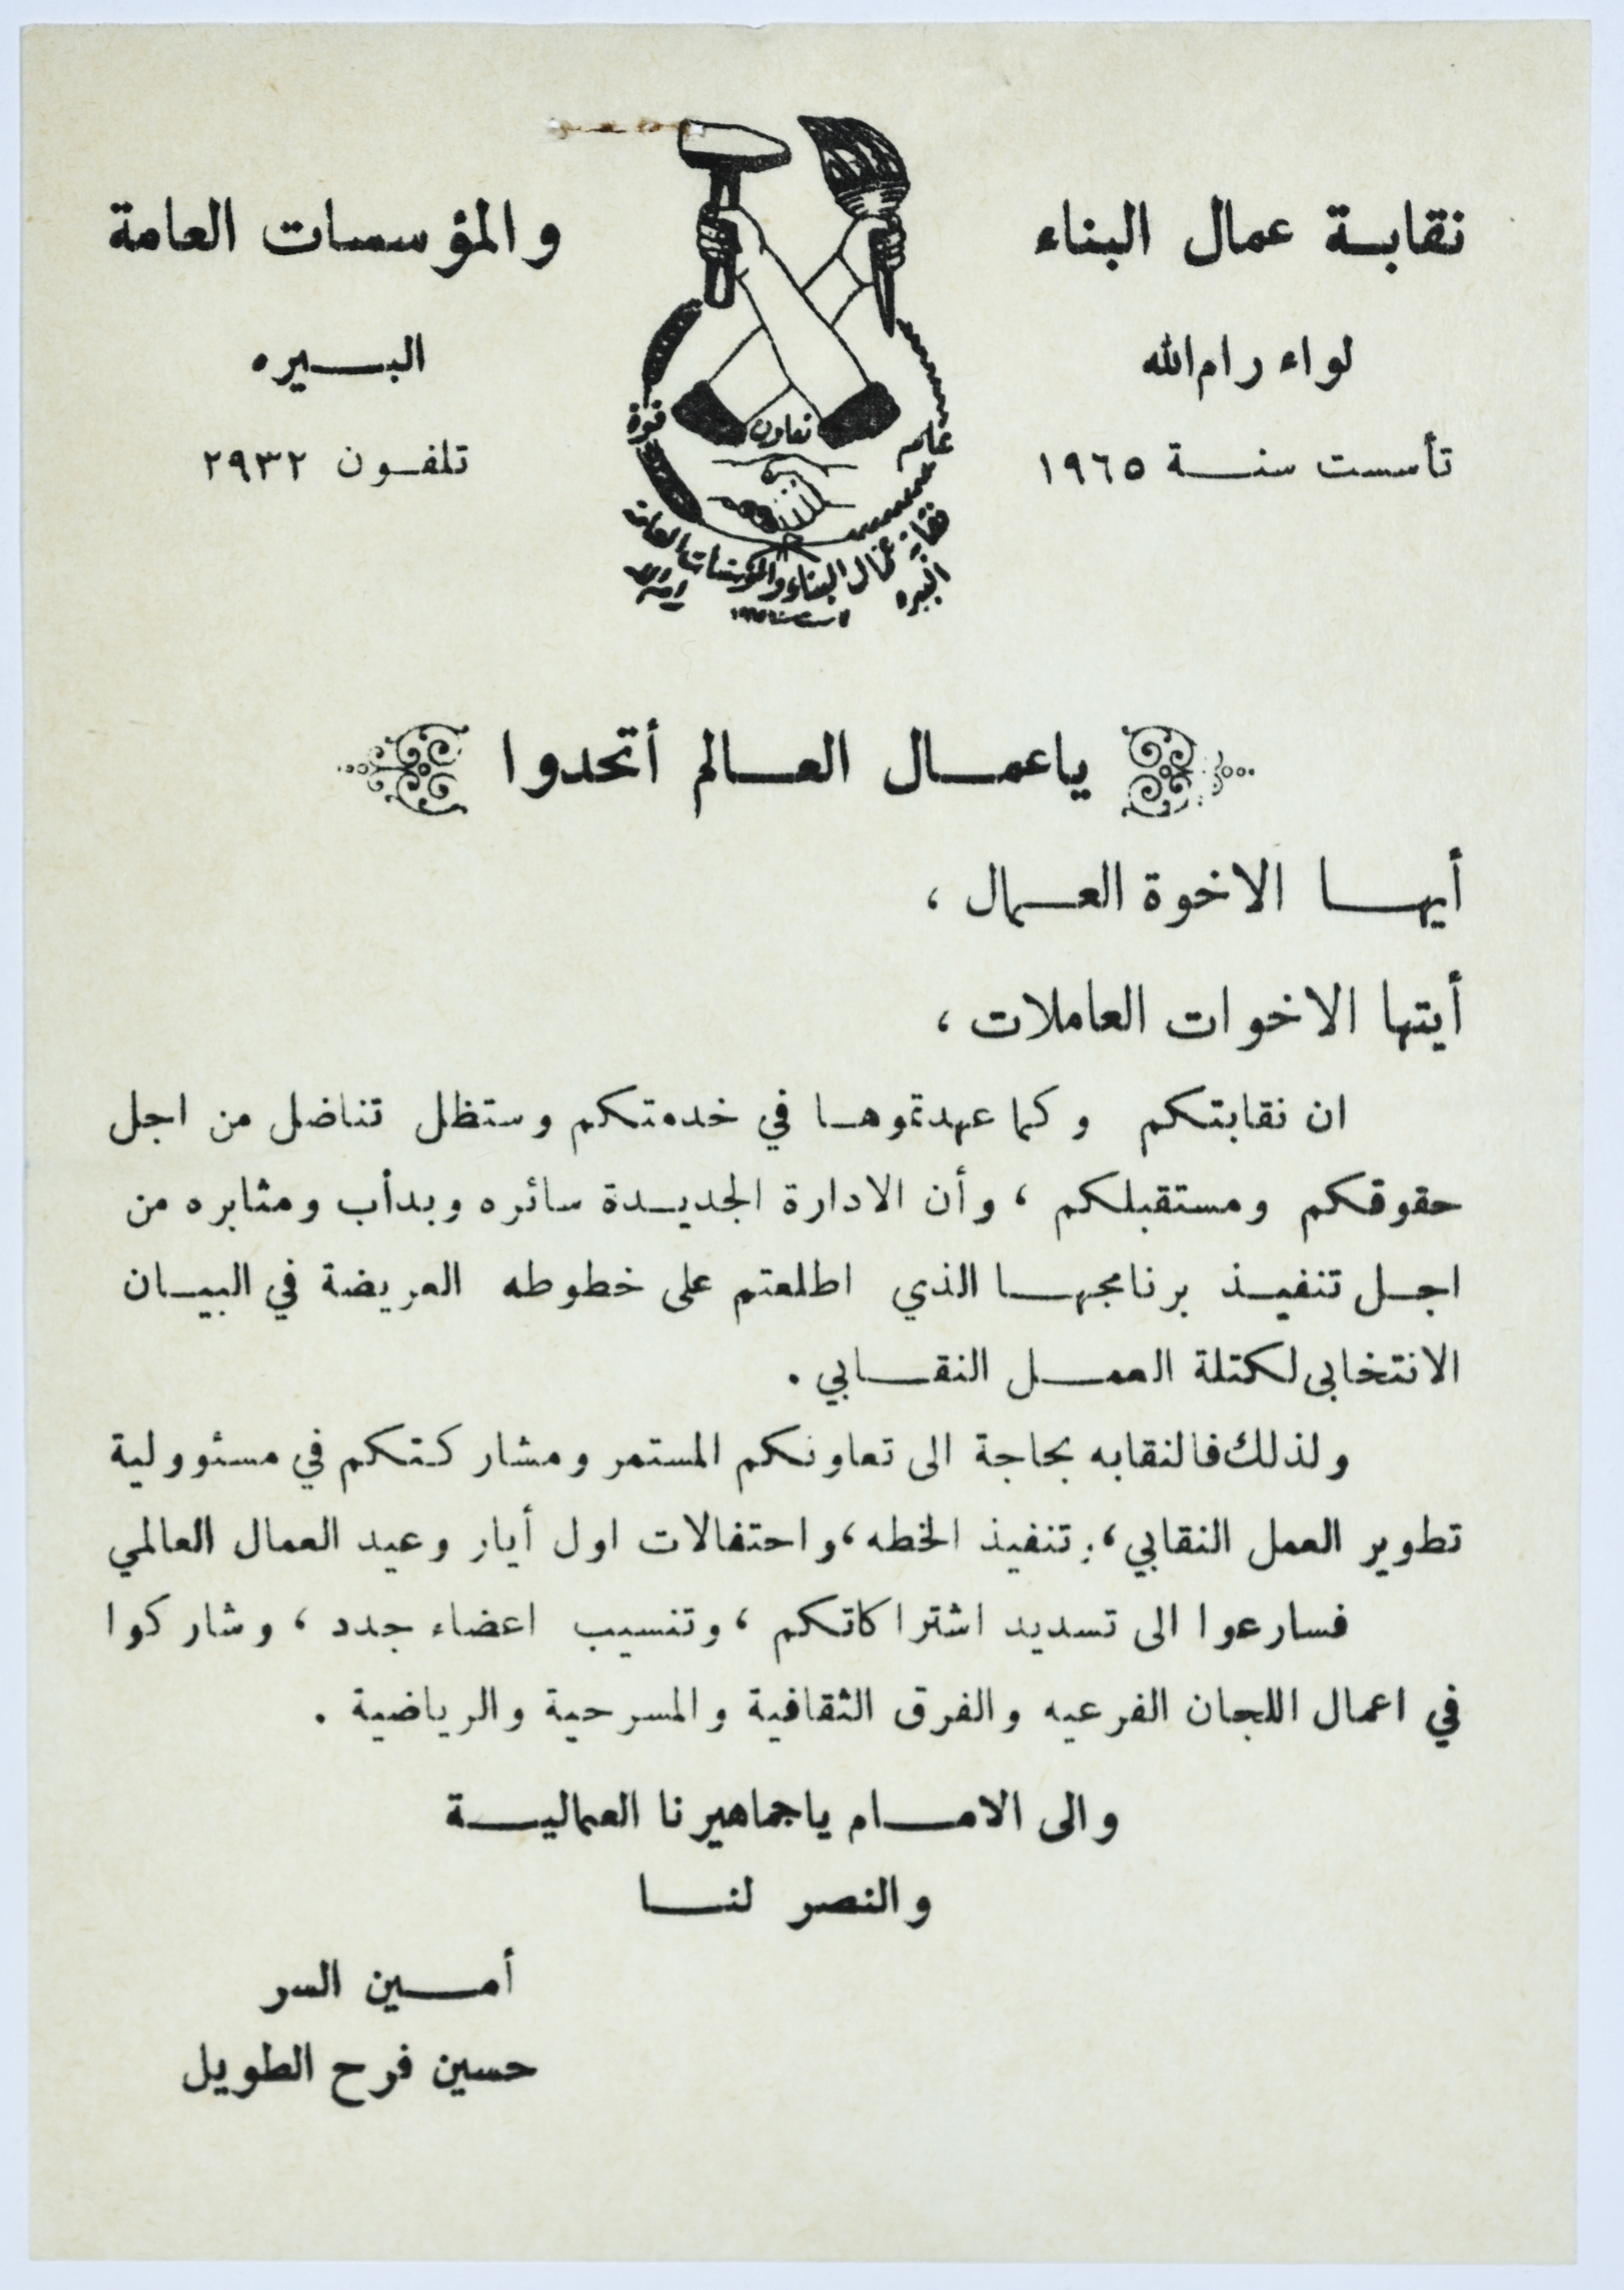 نقابة عمال البناء والمؤسسات العامة
لواء رام الله
البيره
تأسست سنة ١٩٦٥
تلفون ٢٩٣٢
علم
تعاون
قوة
نقابة عمال البناء والمؤسسات العامة
البيره
رام الله
تأسست سنة ١٩٦٥
ياعمال العالم أتحدوا
أيها الاخوة العمال ،
أيتها الاخوات العاملات ،
ان نقابتكم وكما عهدتموها في خدمتكم وستظل تناضل من اجل
حقوقكم ومستقبلكم ، وأن الادارة الجديدة سائره وبدأب ومثابره من
اجل تنفيذ برنامجها الذي اطلعتم على خطوطه العريضة في البيان
الانتخابى لكتلة العمل النقابي .
ولذلك فالنقابه بحاجة الى تعاونكم المستمر ومشاركتكم في مسئوولية
تطوير العمل النقابي ، تنفيذ الخطه ، واحتفالات اول أيار وعيد العمال العالمي
فسارعوا الى تسديد اشتراكاتكم ، وتنسيب اعضاء جدد ، وشاركوا
في اعمال اللجان الفرعيه والفرق الثقافية والمسرحية والرياضية .
والى الامام ياجماهيرنا العمالية
والنصر لنا
أمين السر
حسين فرح الطويل